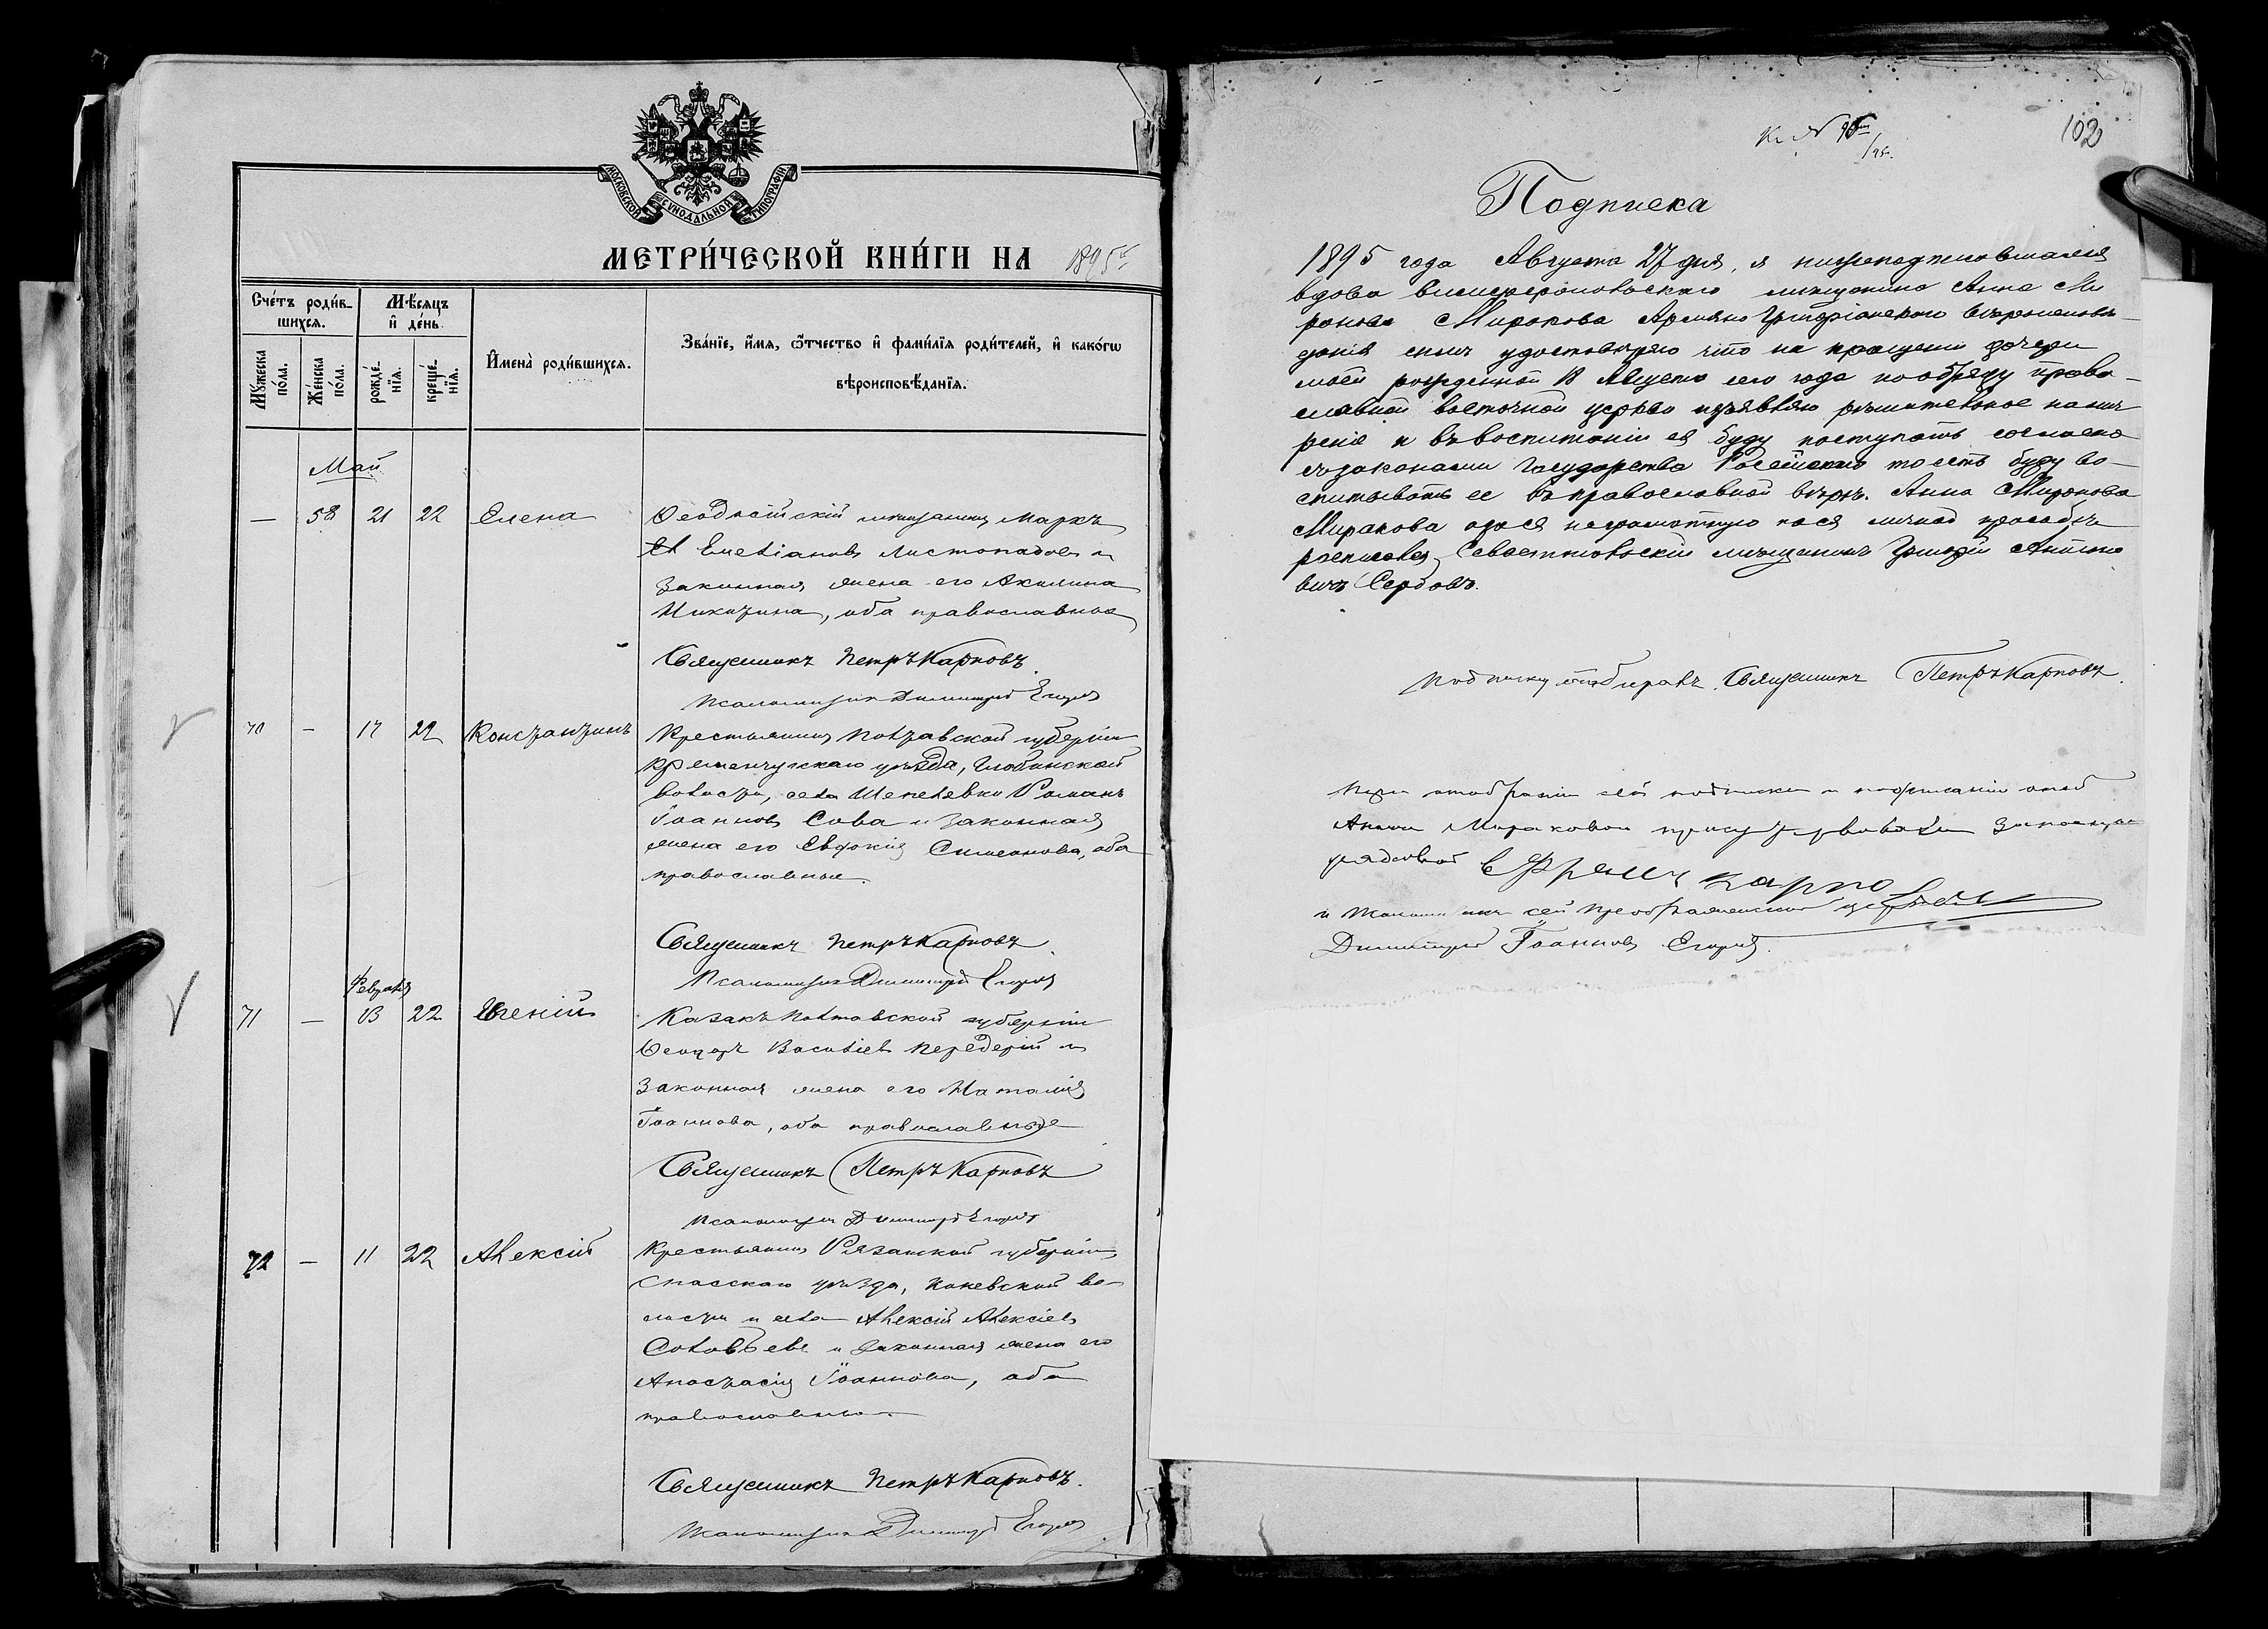 МОСКОВСКОЙ СѴНОДАЛЬНОЙ ТИПОГРАФІИ
МЕТРИ́ЧЕСКОЙ КНИ́ГИ НА 1895 г.
Сче́тъ роди́в-
шихсѧ.
Мѣ́сѧцъ
и҆ де́нь.
Мꙋ́жеска
по́ла.
Же́нска
по́ла.
рожде́-
нїѧ.
креще́-
нїѧ.
И҆мена̀ роди́вшихсѧ.
Зва́нїе, и҆́мѧ, ѻ҆́тчество и҆ фами́лїѧ роди́телей, и҆ како́гѡ
вѣроисповѣ́данїѧ.
Май
— 58 21 22 Елена Ѳеодосійскій мѣщанинъ Маркъ
Емеліановъ Листопадовъ и
законная жена его Акилина
Никитина, оба православные
Священникъ Петръ Карповъ.
Псаломщикъ Димитрій Егоровъ
70 — 17 22 Константинъ Крестьянинъ Полтавской губерніи
Кременчугскаго уѣзда, Глобинской
волости, села Шепелевки Романъ
Іоанновъ Сова и законная
жена его Евдокія Симеонова, оба
православные.
Священникъ Петръ Карповъ.
Псаломщикъ Димитрій Егоровъ
Февраля
71 — 13 22 Евгеній Казакъ Полтавской губерніи
Ѳеодоръ Васильевъ Передерій и
законная жена его Наталія
Іоаннова, оба православные
Священникъ Петръ Карповъ
Псаломщикъ Димитрій Егоровъ
72 — 11 22 Алексій Крестьянинъ Рязанской губерніи,
Спасскаго уѣзда, во-
лости и села Алексій Алексіевъ
Соловьевъ и законная жена его
Анастасія Іоаннова, оба
православные.
Священникъ Петръ Карповъ.
Псаломщикъ Димитрій Егоровъ
102
Къ № 95
Подписка
1895 года Августа 27 дня, я нижеподписавшаяся
вдова мѣщанина Анна Ми
ронова Миракова Армяно Григоріанскаго вѣроисповѣ-
данія симъ удостовѣряю что на крещеніи дочери
моей рожденной 13 Августа сего года по обряду право-
славной восточной церкви изъявляю рѣшительное намѣ
реніе и въ воспитаніи ея буду поступать согласно
съ законами Государства Россійскаго то есть буду во-
спитывать ее въ православной вѣрѣ. Анна Миронова
Миракова а за ея неграмотную по ея личной просьбѣ
росписался Севастопольскій мѣщанинъ Григорій Антоно
вичъ Сербовъ.
Подписку отбиралъ Священникъ Петръ Карповъ.
При отобраніи сей подписки и подписаніи оной
Анною Мираковой присутствовали запасный
рядовой Ефремъ Карповъ
и Псаломщикъ сей Преображенской церкви
Димитрій Іоанновъ Егоровъ.